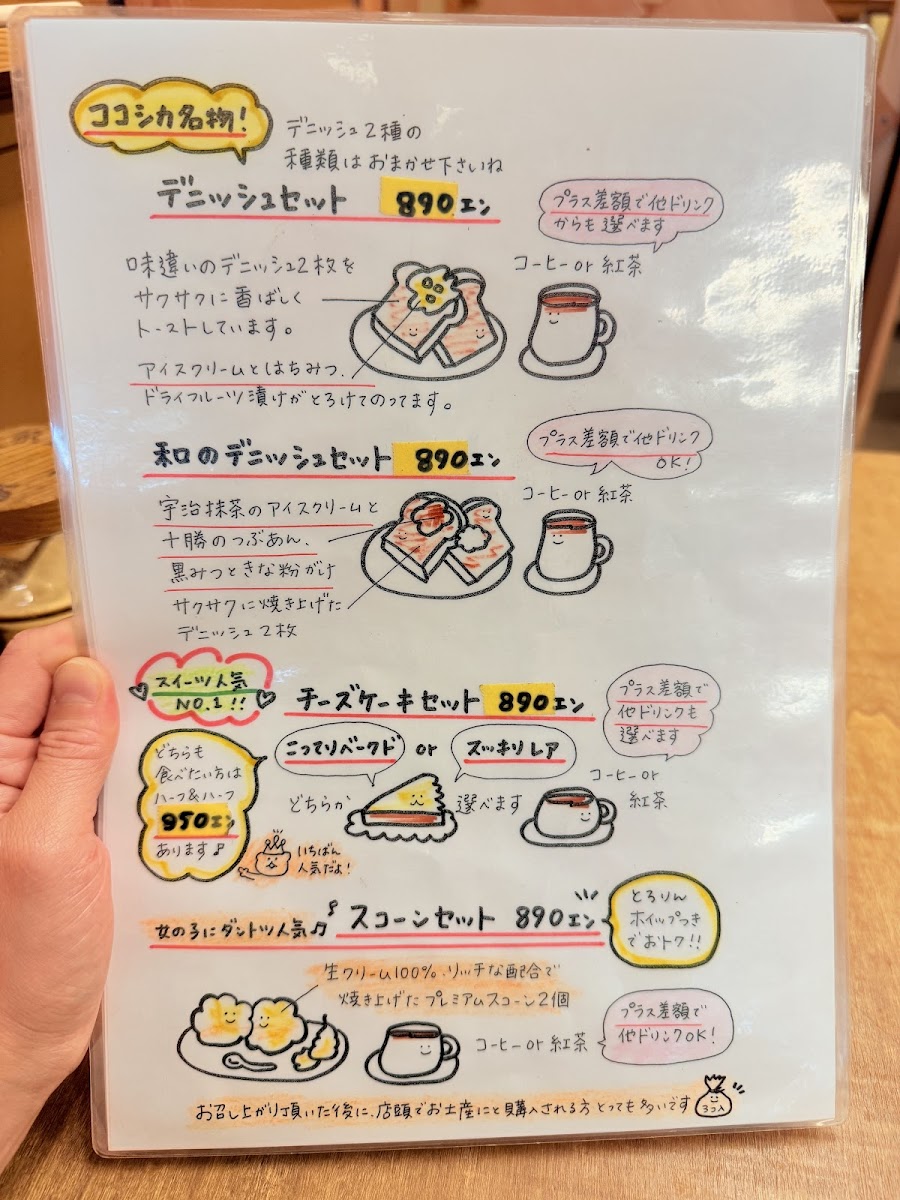 ココシカ名物!
デニッシュ2種の
種類はおまかせ下さいね
デニッシュセット 890エン
プラス差額で他ドリンク
からも選べます
コーヒー or 紅茶
味違いのデニッシュ2枚を
サクサクに香ばしく
トーストしています。
アイスクリームとはちみつ、
ドライフルーツ漬けがとろけてのってます。
和のデニッシュセット 890エン
プラス差額で他ドリンク
OK!
コーヒー or 紅茶
宇治抹茶のアイスクリームと
十勝のつぶあん、
黒みつときな粉がけ
サクサクに焼き上げた
デニッシュ2枚
スイーツ人気
NO.1!!
チーズケーキセット 890エン
プラス差額で
他ドリンクも
選べます
どちらも
食べたい方は
ハーフ&ハーフ
950エン
あります♪
こってりベークド or スッキリレア
どちらか 選べます
コーヒー or
紅茶
いちばん
人気だよ!
女の子にダントツ人気♫
スコーンセット 890エン
とろりん
ホイップつき
でおトク!!
生クリーム100%、リッチな配合で
焼き上げたプレミアムスコーン2個
コーヒー or 紅茶
プラス差額で
他ドリンクOK!
お召し上がり頂いた後に、店頭でお土産にと購入される方とっても多いです
3コ入